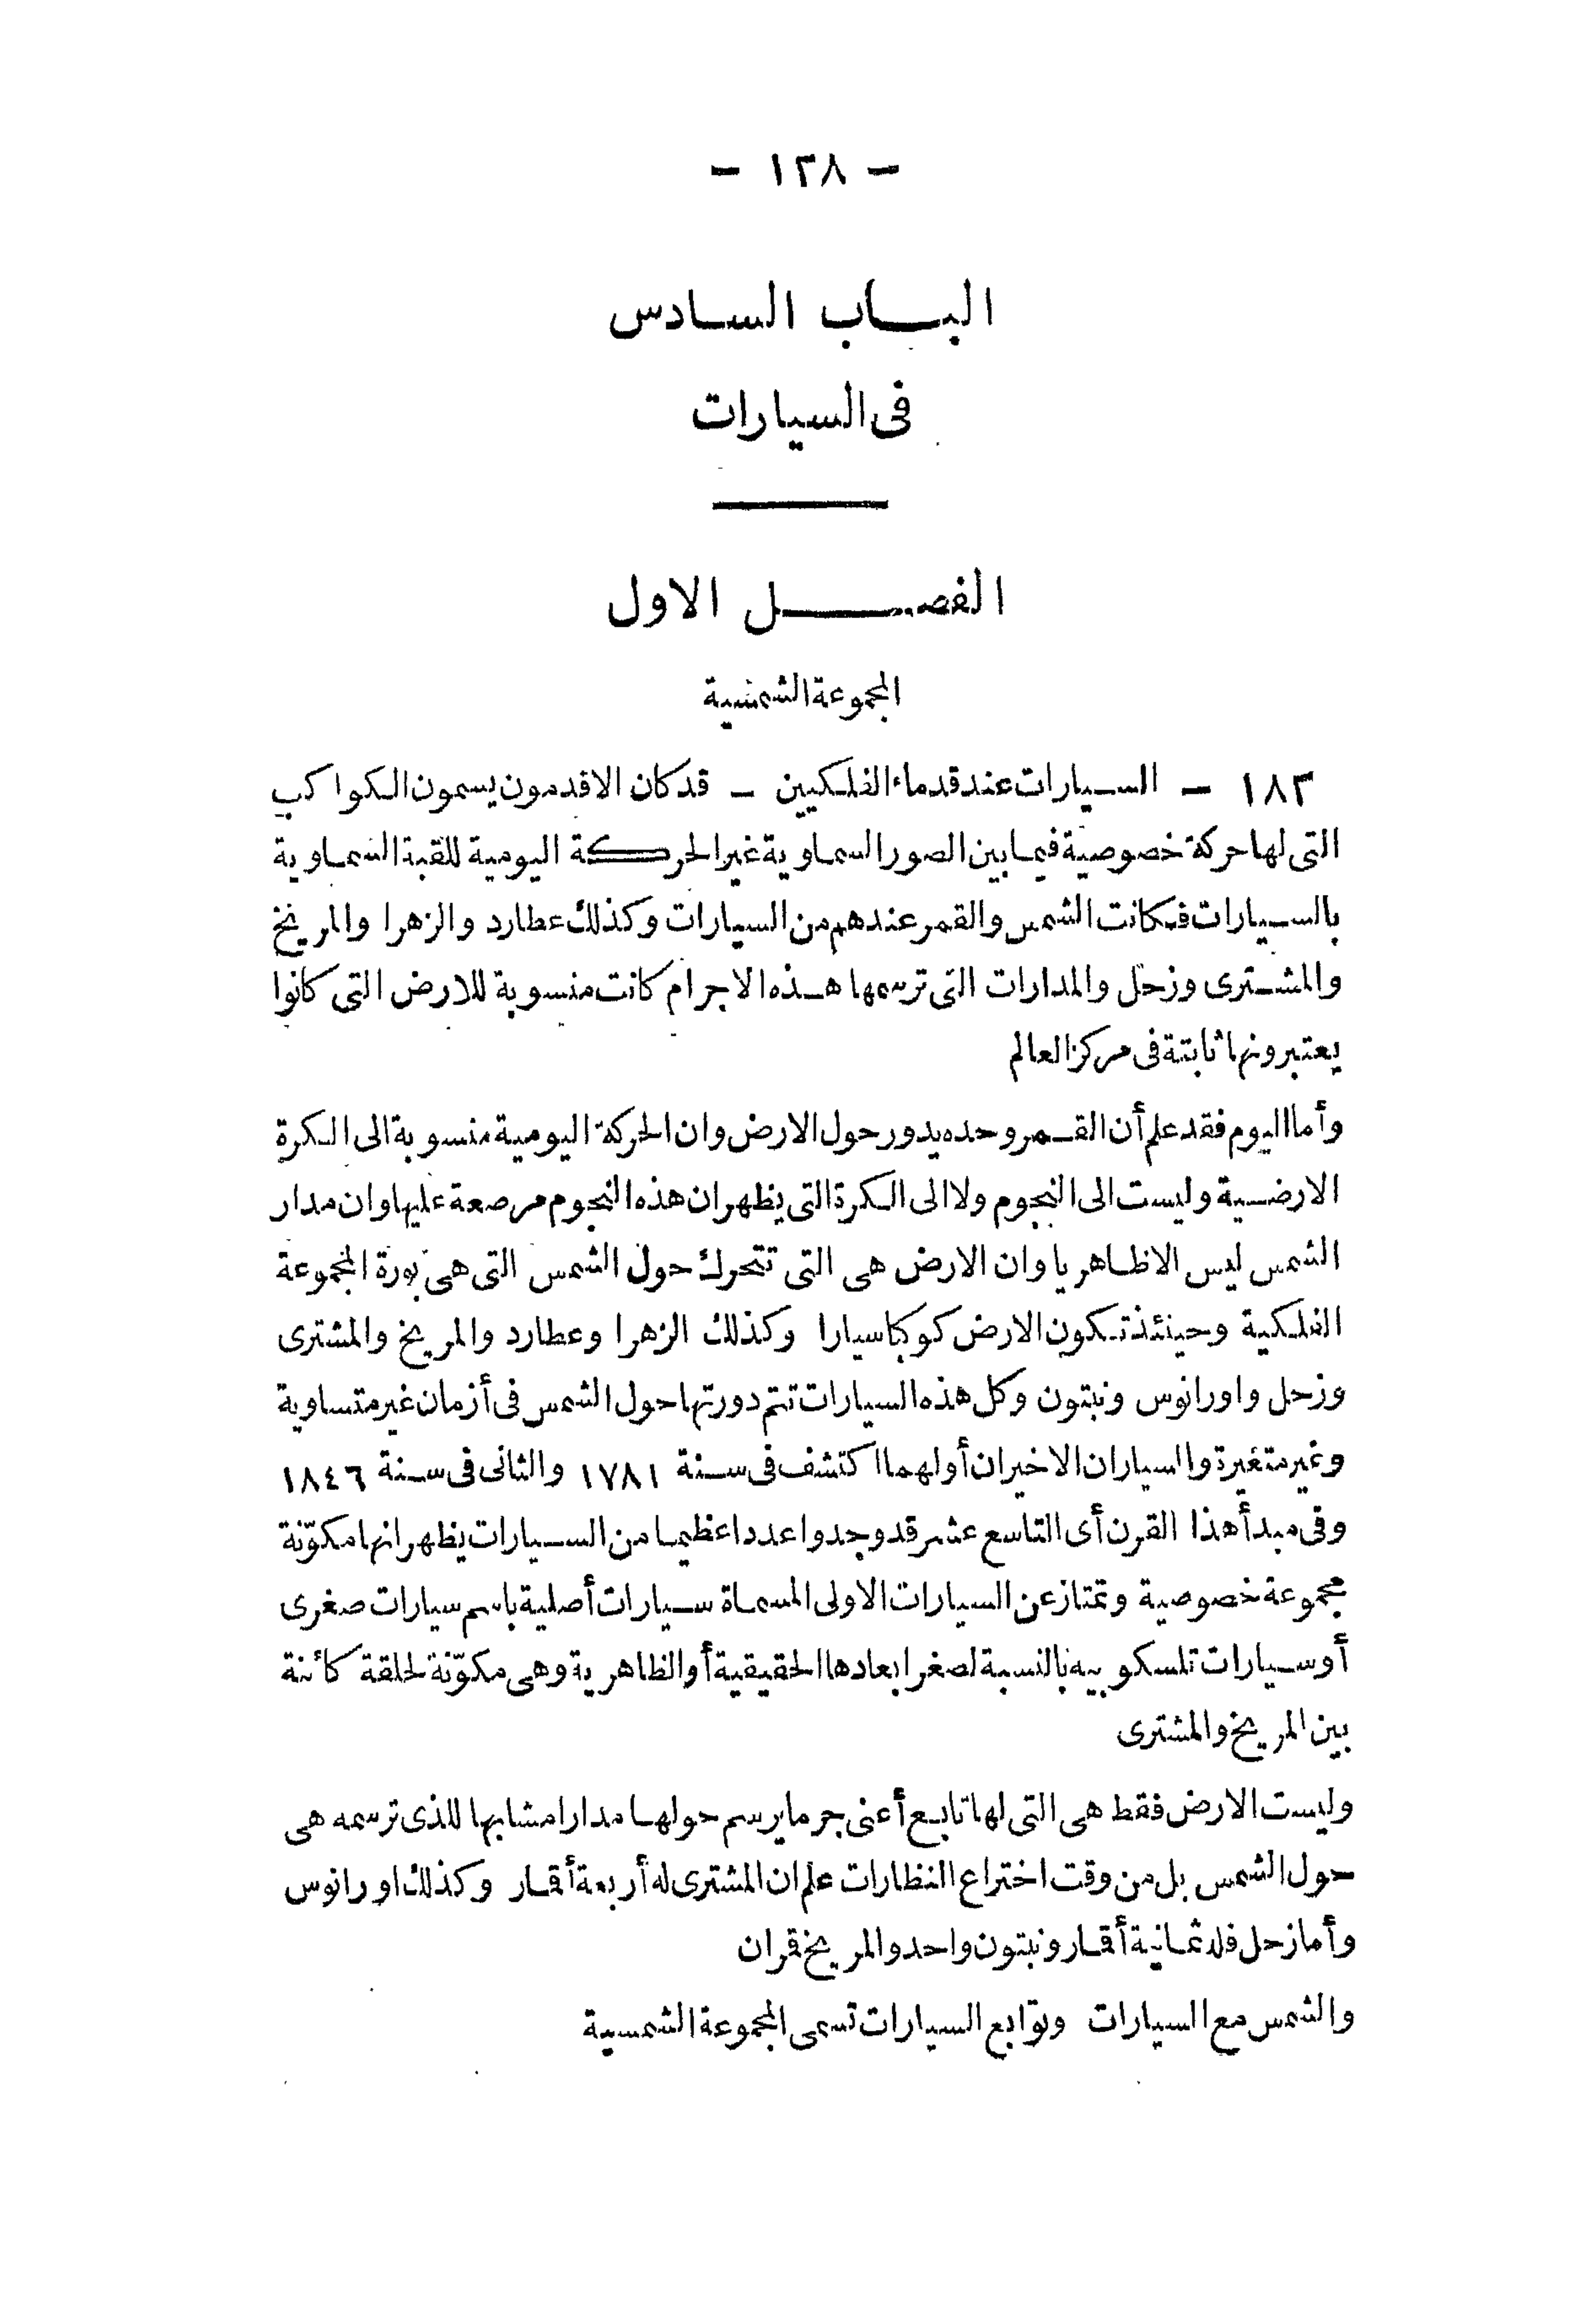 — ١٣٨ —
الباب السادس
فى السيارات
الفصل الاول
المجموعة الشمسية
١٨٣ — السيارات عند قدماء الفلكيين — قد كان الاقدمون يسمون الكواكب
التى لها حركة خصوصية فيما بين الصور السماوية غير الحركة اليومية للقبة السماوية
بالسيارات فكانت الشمس والقمر عندهم من السيارات وكذلك عطارد والزهرا والمريخ
والمشترى وزحل والمدارات التى ترسمها هذه الاجرام كانت منسوبة للارض التى كانوا
يعتبرونها ثابتة فى مركز العالم
وأما اليوم فقد علم أن القمر وحده يدور حول الارض وان الحركة اليومية منسوبة الى الكرة
الارضية وليست الى النجوم ولا الى الكرة التى يظهر ان هذه النجوم مرصعة عليها وان مدار
الشمس ليس الا ظاهريا وان الارض هى التى تتحرك حول الشمس التى هى بورة المجموعة
الفلكية وحينئذ تكون الارض كوكبا سيارا وكذلك الزهرا وعطارد والمريخ والمشترى
وزحل واورانوس ونبتون وكل هذه السيارات تتم دورتها حول الشمس فى أزمان غير متساوية
وغير متغيرة والسياران الاخيران أولهما اكتشف فى سنة ١٧٨١ والثانى فى سنة ١٨٤٦
وفى مبدأ هذا القرن أى التاسع عشر قد وجدوا عددا عظيما من السيارات يظهر انها مكوّنة
مجموعة خصوصية وتمتاز عن السيارات الاولى المسماة سيارات أصلية باسم سيارات صغرى
أو سيارات تلسكوبيه بالنسبة لصغر ابعادها الحقيقية أو الظاهرية وهى مكوّنة لحلقة كائنة
بين المريخ والمشترى
وليست الارض فقط هى التى لها تابع أعنى جرما يرسم حولها مدارا مشابها للذى ترسمه هى
حول الشمس بل من وقت اختراع النظارات علم ان المشترى له أربعة أقمار وكذلك اورانوس
وأما زحل فله ثمانية أقمار ونبتون واحد والمريخ قمران
والشمس مع السيارات وتوابع السيارات تسمى المجموعة الشمسية